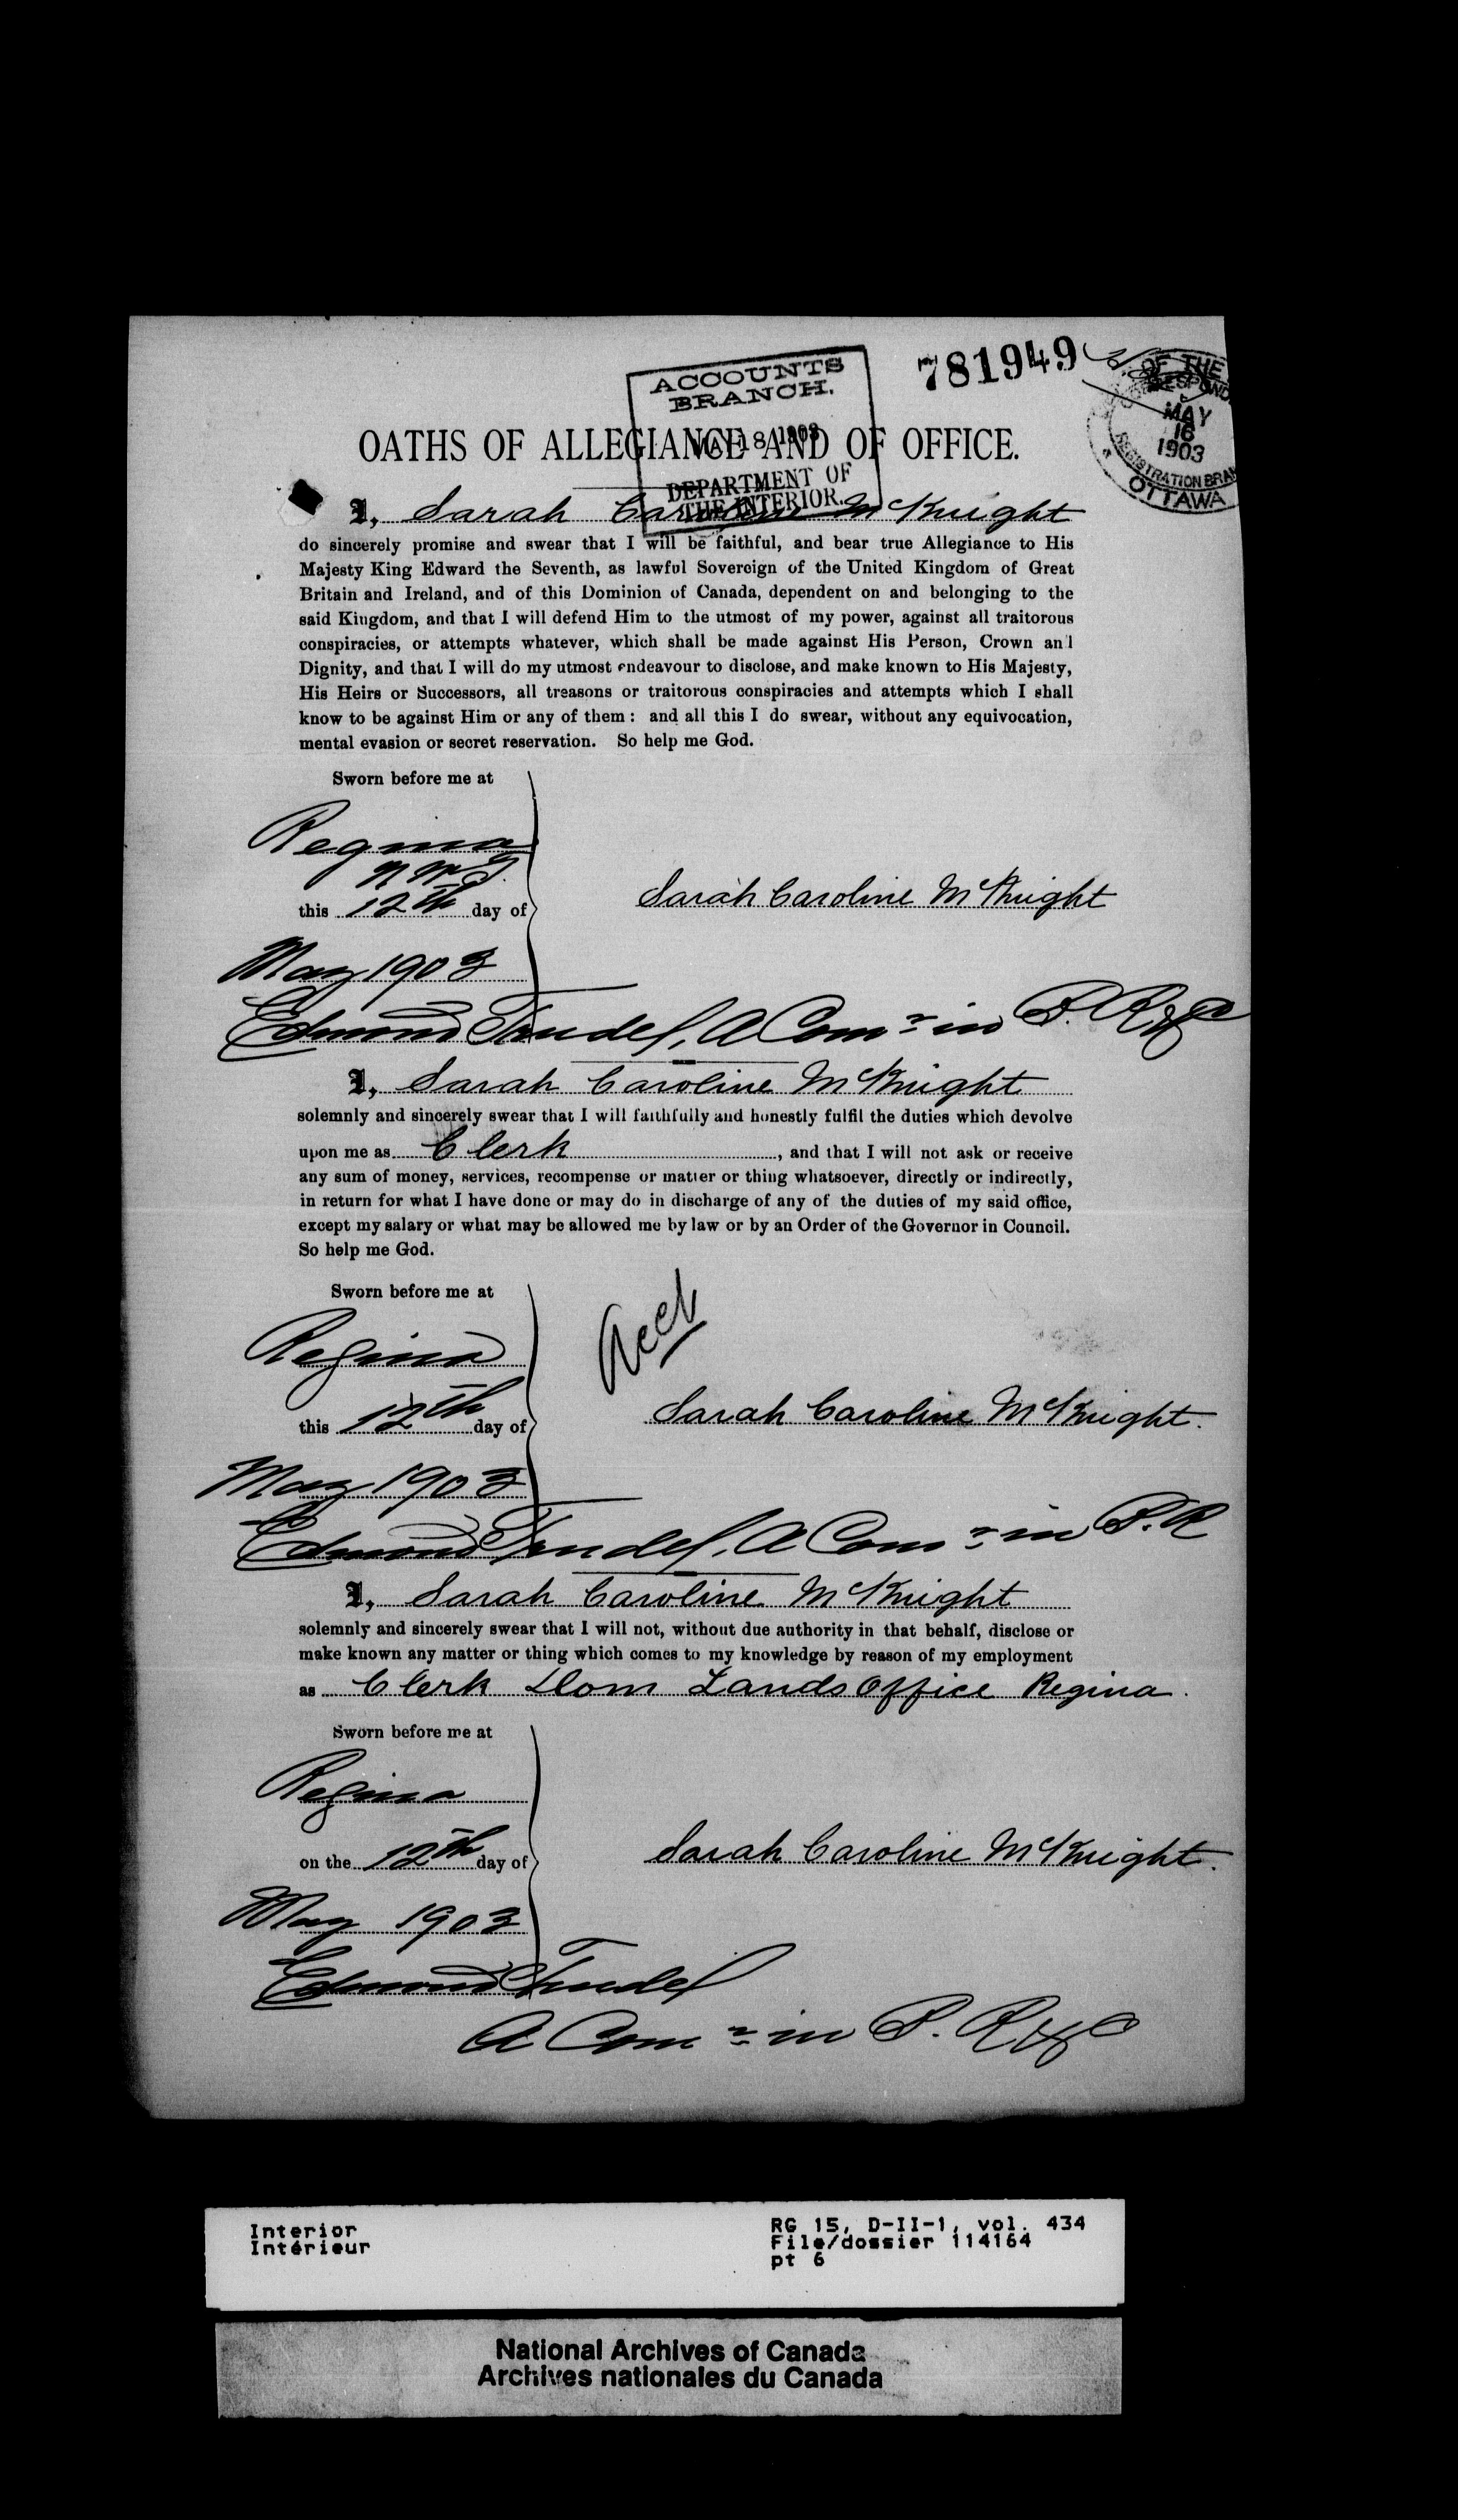 781949
ACCOUNTS
BRANCH.
MAY 18 1903
DEPARTMENT OF
THE INTERIOR.
OF THE
MAY
16
1903
REGISTRATION BRAN
OTTAWA
OATHS OF ALLEGIANCE AND OF OFFICE.
I, Sarah Caroline McKnight
do sincerely promise and swear that I will be faithful, and bear true Allegiance to His
Majesty King Edward the Seventh, as lawful Sovereign of the United Kingdom of Great
Britain and Ireland, and of this Dominion of Canada, dependent on and belonging to the
said Kingdom, and that I will defend Him to the utmost of my power, against all traitorous
conspiracies, or attempts whatever, which shall be made against His Person, Crown and
Dignity, and that I will do my utmost endeavour to disclose, and make known to His Majesty,
His Heirs or Successors, all treasons or traitorous conspiracies and attempts which I shall
know to be against Him or any of them : and all this I do swear, without any equivocation,
mental evasion or secret reservation. So help me God.
Sworn before me at
Regina
N.W.T.
this 12th day of
Sarah Caroline McKnight
May 1903
Edmond Trudel, A Comr in B.R &c
I, Sarah Caroline McKnight
solemnly and sincerely swear that I will faithfully and honestly fulfil the duties which devolve
upon me as Clerk, and that I will not ask or receive
any sum of money, services, recompense or matter or thing whatsoever, directly or indirectly,
in return for what I have done or may do in discharge of any of the duties of my said office,
except my salary or what may be allowed me by law or by an Order of the Governor in Council.
So help me God.
Sworn before me at
Regina
this 12th day of
Sarah Caroline McKnight.
May 1903
Edmond Trudel, A Comr in B.R
I, Sarah Caroline McKnight
solemnly and sincerely swear that I will not, without due authority in that behalf, disclose or
make known any matter or thing which comes to my knowledge by reason of my employment
as Clerk Dom Lands Office Regina.
Sworn before me at
Regina
on the 12th day of
Sarah Caroline McKnight.
May 1903
Edmond Trudel
A Comr in B.R &c
Interior
Intérieur
RG 15, D-II-1, vol. 434
File/dossier 114164
pt 6
National Archives of Canada
Archives nationales du Canada